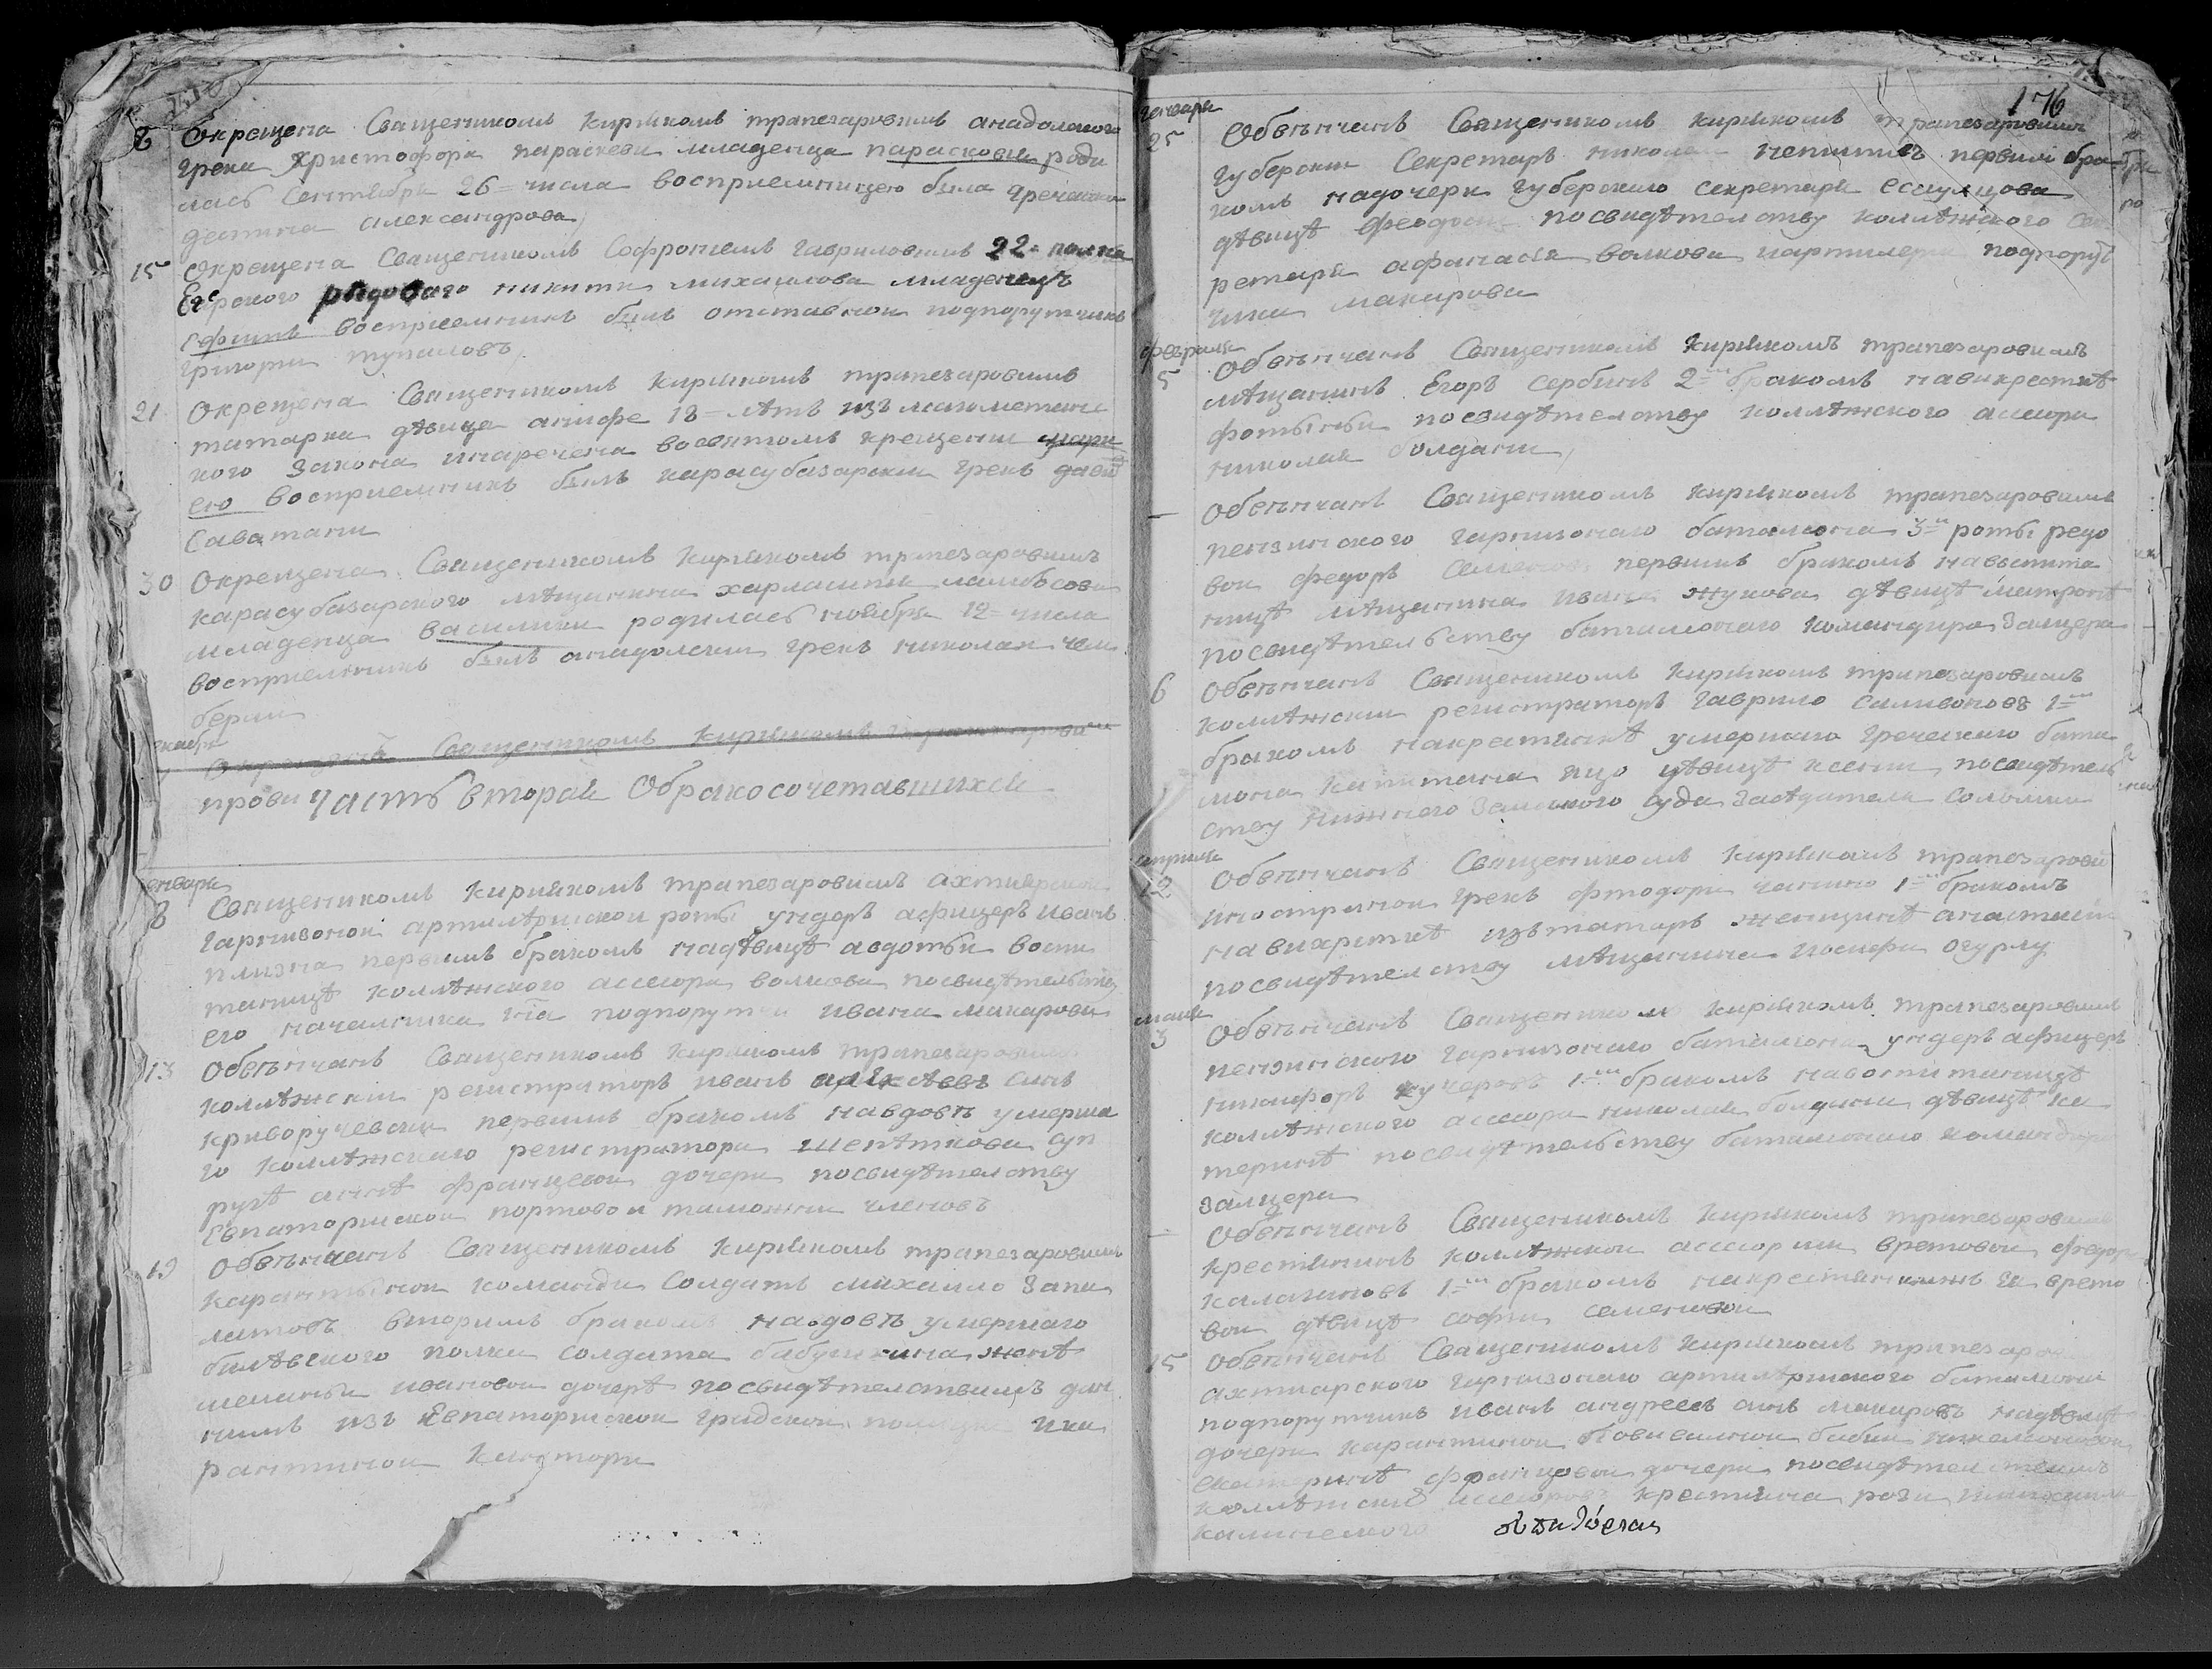 8 Окрещена Священикомъ Кириякомъ трапезаровимъ анадолского
грека Христофора параскеви младенца парасковия роди
лась Сентября 26 = числа восприемницею била гречанка
деспина александрова
15 Окрещена Священикомъ Софрониемъ гавриловимъ 22 = полка
Егерского рядоваго никити михаилова младенецъ
Ефимъ восприемникъ былъ отставнои подпорутчикъ
григори тупаловъ
21 Окрещена Священикомъ Кириякомъ трапезаровимъ
татарка дѣвица анифе 18 = лѣтъ изъ магометанс
кого закона инаречена восвятомъ крещени мари
ею восприемникъ былъ карасубазарски грекъ
Саватани
30 Окрещена Священикомъ Кириякомъ трапезаровимъ
карасубазарского мѣщанина харлампи ламбосова
младенца василики родилась ноября 12 = числа
восприемникъ былъ анадолски грекъ николаи чем
берли
екабря
Священикомъ Кириякомъ
прови часть вторая Обракосочетавшихся
енваря
8 Священикомъ Кириякомъ трапезаровимъ ахтиярской
гарнизонои артилѣрискои роты ундеръ афицеръ иванъ
первимъ бракомъ надѣвицѣ авдотьи воспи
таницѣ колѣжского асесора волкова посвидѣтельству
его началника подпорутчи ивана макарова
13 Обвѣнчанъ Священикомъ Кириякомъ трапезаровимъ
колѣжски регистраторъ иванъ синъ
криворучевски первимъ бракомъ навдовѣ умерша
го колѣжского регистратора шепѣткова суп
ругѣ аннѣ францевои дочери посвидѣтелству
Евпаторискои портовои таможни членовъ
19 Обвѣнчанъ Священикомъ Кириякомъ трапезаровимъ
карантинои команди Солдатъ михаило Запи
латовъ вторимъ бракомъ навдовѣ умершаго
билѣвского полка солдата жонѣ
меланьи ивановои дочерѣ посвидѣтелствамъ дан
нимъ изъ Евпаторискои градскои полиции ика
рантинои Кантори
176
генваря
25 Обвѣнчанъ Священикомъ Кириякомъ трапезаровимъ
губерски Секретаръ николаи первимъ бра
комъ надочери губерского секретаря есаулцова
дѣвицѣ посвидѣтелству колѣжского сек
ретаря афанасия волкова иартилери подпорут
чика макарова
февраля
5 Обвѣнчанъ Священикомъ Кириякомъ трапезаровимъ
мѣщанинъ Егоръ Сербинъ 2 = бракомъ навикресткѣ
фотыньи посвидѣтелству колѣжского асесора
николая болдани
— Обвѣнчанъ Священикомъ Кириякомъ трапезаровимъ
пензинского гарнизонаго баталиона 3 = роты редо
вои федоръ Семеновъ первимъ бракомъ навоспита
ницѣ мѣщанина ивана жукова дѣвицѣ матронѣ
посвидѣтельству баталионаго командира Залцера
6 Обвѣнчанъ Священикомъ Кириякомъ трапезаровимъ
колѣжски регистраторъ гаврило саливоновъ 1 =
бракомъ накрестянкѣ умершаго греческого бата
лиона капитана дѣвицѣ ксении посвидѣтель
ству нижнего Земского суда Засѣдателя
априля
12 Обвѣнчанъ Священикомъ Кириякомъ трапезарови
иностранои грекъ фтодори 1 = бракомъ
навихресткѣ изъ татаръ женщинѣ анастасии
посвидѣтелству мѣщанина иосифа огурлу
маия
3 Обвѣнчанъ Священикомъ Кириякомъ трапезаровимъ
пензинского гарнизонаго баталиона ундеръ афицеръ
никифоръ кучеровъ 1 = бракомъ навоспитаницѣ
колѣжского асесора николая болдани дѣвицѣ ка
теринѣ посвидѣтельству баталионаго командира
Залцера
— Обвѣнчанъ Священикомъ Кириякомъ трапезаровимъ
крестянинъ колѣжскои асесорши вретовои федоръ
калашновъ 1 = бракомъ накрестянки врето
вои дѣвицѣ софии семеновои
15 Обвѣнчанъ Священикомъ Кириякомъ трапезаров
ахтиарского гарнизонаго артилѣриского баталиона
подпорутчикъ иванъ андреевъ синъ макаровъ надѣвицѣ
дочери карантинои Повивалнои бабки
екатеринѣ францовои дочери посвидѣтелствамъ
колѣжскихъ асесоровъ